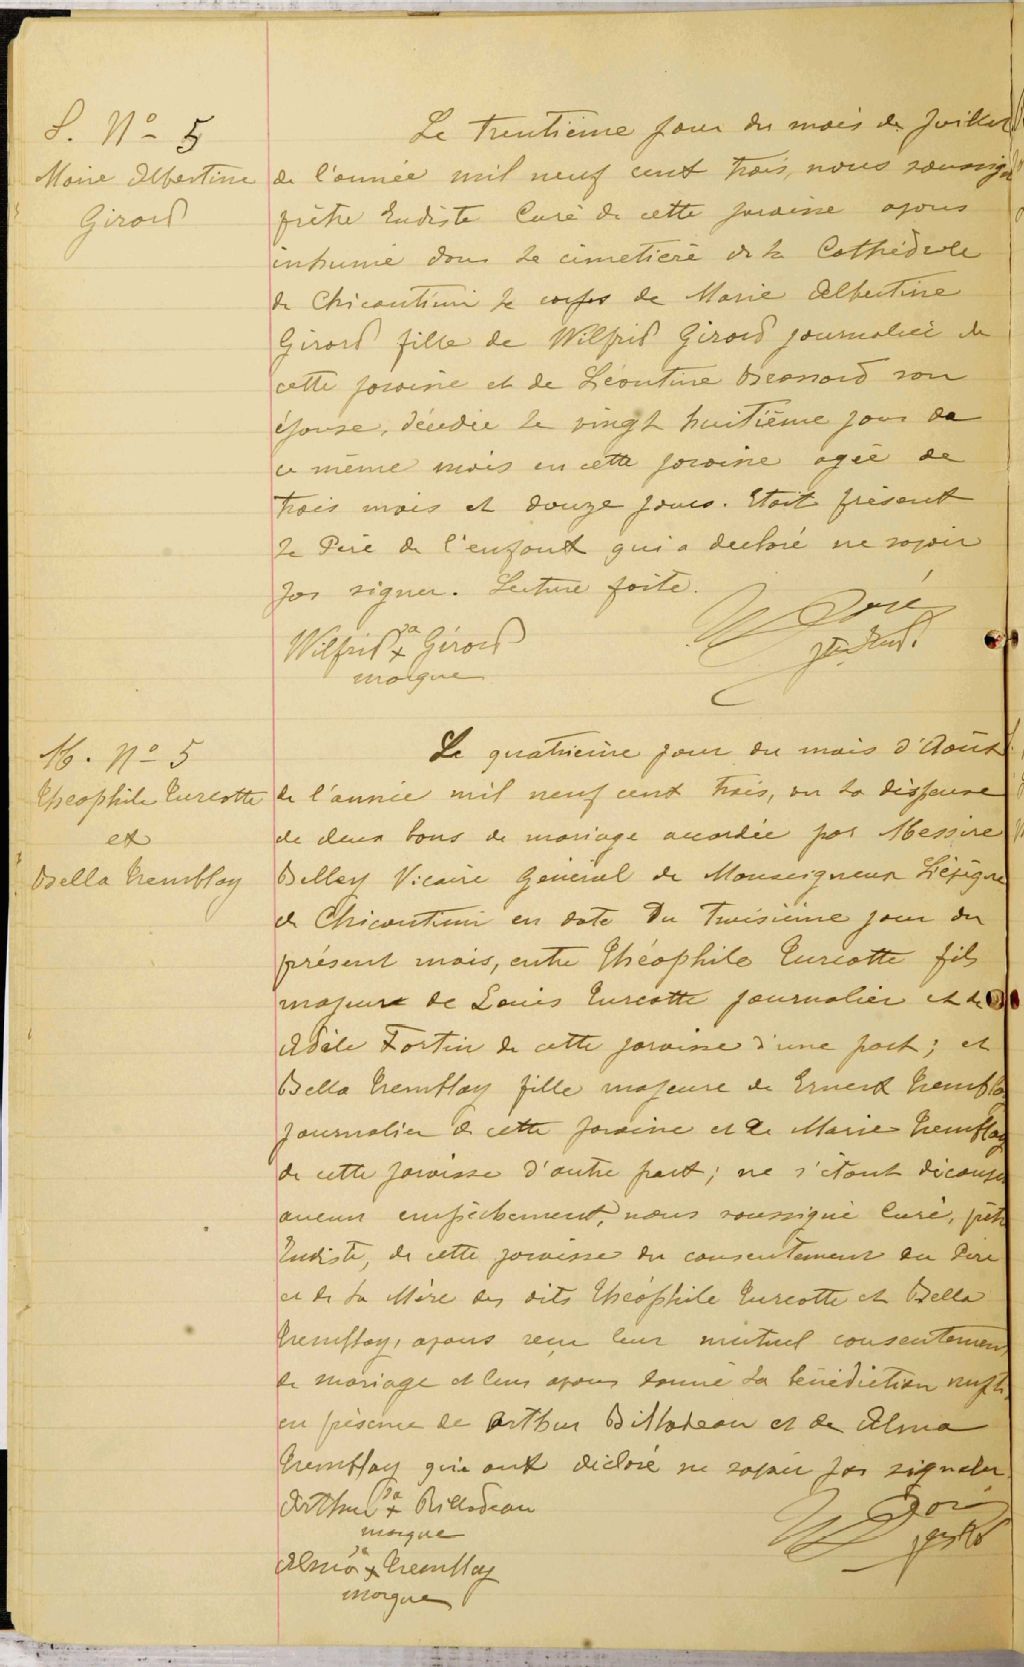 S. No 5
Marie Albertine
Girard
Le trentième jour du mois de Juillet
de l'année mil neuf cent trois, nous soussigné
prêtre Eudiste Curé de cette paroisse avons
inhumé dans le cimetière de la Cathédrale
de Chicoutimi le corps de Marie Albertine
Girard fille de Wilfrid Girard journalier de
cette paroisse et de Léontine Brassard son
épouse, décédée le vingt huitième jour de
ce même mois en cette paroisse agée de
trois mois et douze jours. Etait présent
le Père de l'enfant qui a declaré ne savoir
pas signer. Lecture faite.
Wilfrid sa x Girard
marque
Doré
M. No 5
Théophile Turcotte
et
Bella Tremblay
Le quatrième jour du mois d'Août
de l'année mil neuf cent trois, vu la dispense
de deux bans de mariage accordée par Messire
Belley Vicaire Général de Monseigneur L'évêque
de Chicoutimi en date Du troisième jour du
présent mois, entre Théophile Turcotte fils
majeur de Louis Turcotte journalier et de
Adèle Fortin de cette paroisse d'une part; et
Bella Tremblay fille majeure de Ernest Tremblay
journalier de cette paroisse et de Marie Tremblay
de cette paroisse d'autre part; ne s'étant découvert
aucun empêchement, nous soussigné Curé, prêtre
Eudiste, de cette paroisse du consentement du Père
et de la Mère des dits Théophile Turcotte et Bella
Tremblay, avons reçu leur mutuel consentement
de mariage et leur avons donné la bénédiction nupt.
en présence de Arthur Billodeau et de Alma
Tremblay qui ont déclaré ne savoir pas signer.
Arthur sa x Billodeau
marque
Alma sa x Tremblay
marque
Doré